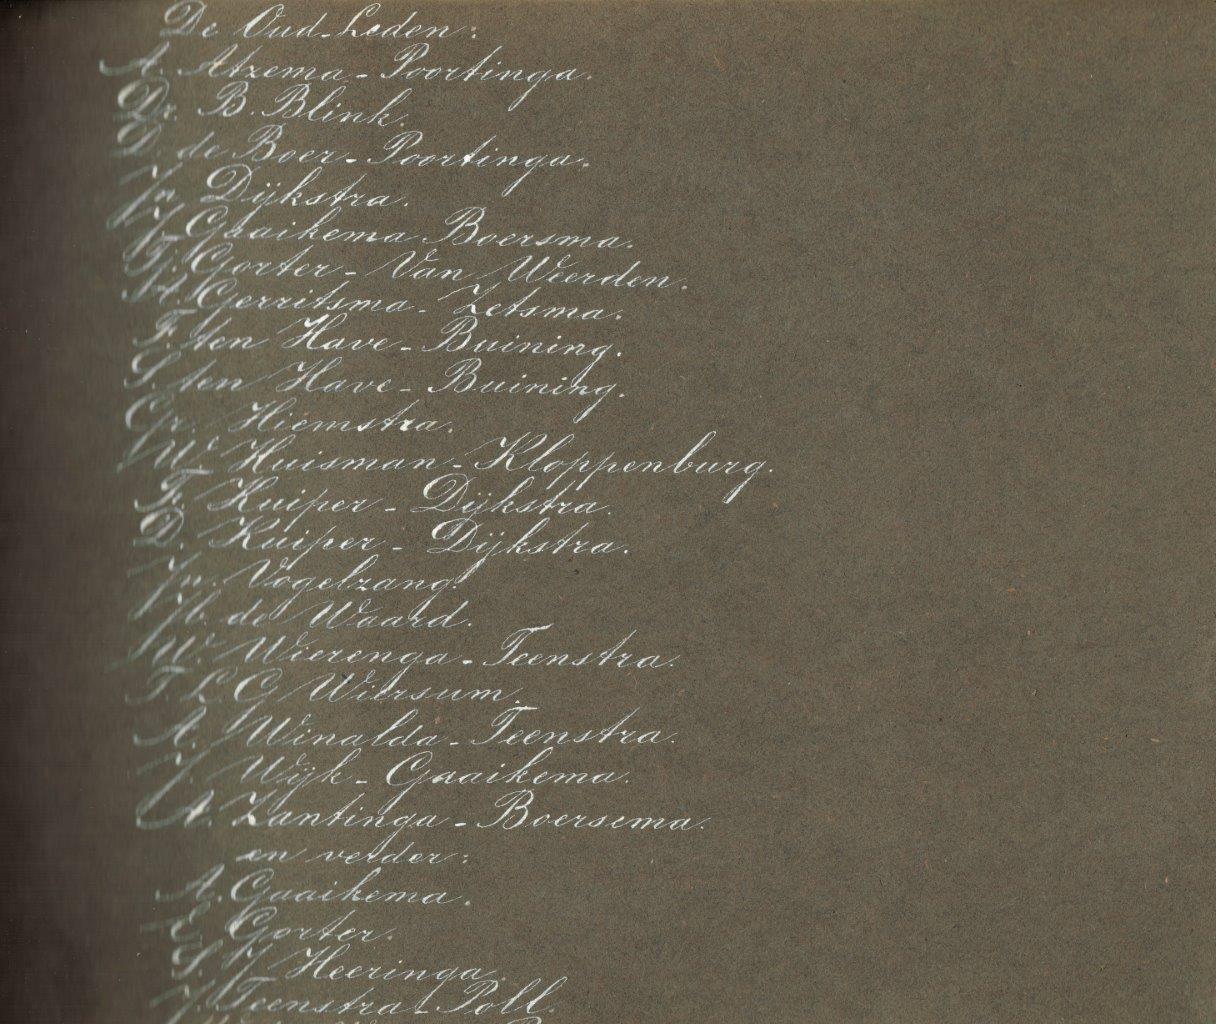 De Oud-Leden:
A. Atzema-Poortinga.
Dr. B. Blink.
D. de Boer-Poortinga.
Jn. Dijkstra.
J. Gaaikema Boersma.
T. Gorter-Van Weerden.
H. Gerritsma-Zetsma.
F. ten Have-Buining.
S. ten Have-Buining.
Gr. Hiemstra.
W. Huisman-Kloppenburg.
F. Kuiper-Dijkstra.
D. Kuiper-Dijkstra.
Jn. Vogelzang.
de Waard.
W. Wierenga-Teenstra.
T L G Wiersum.
A. Winalda-Teenstra.
J. Wijk-Gaaikema.
A. Zantinga-Boersema.
en verder:
A. Gaaikema.
E. Gorter.
S. J Heeringa.
J. Teenstra-Poll.